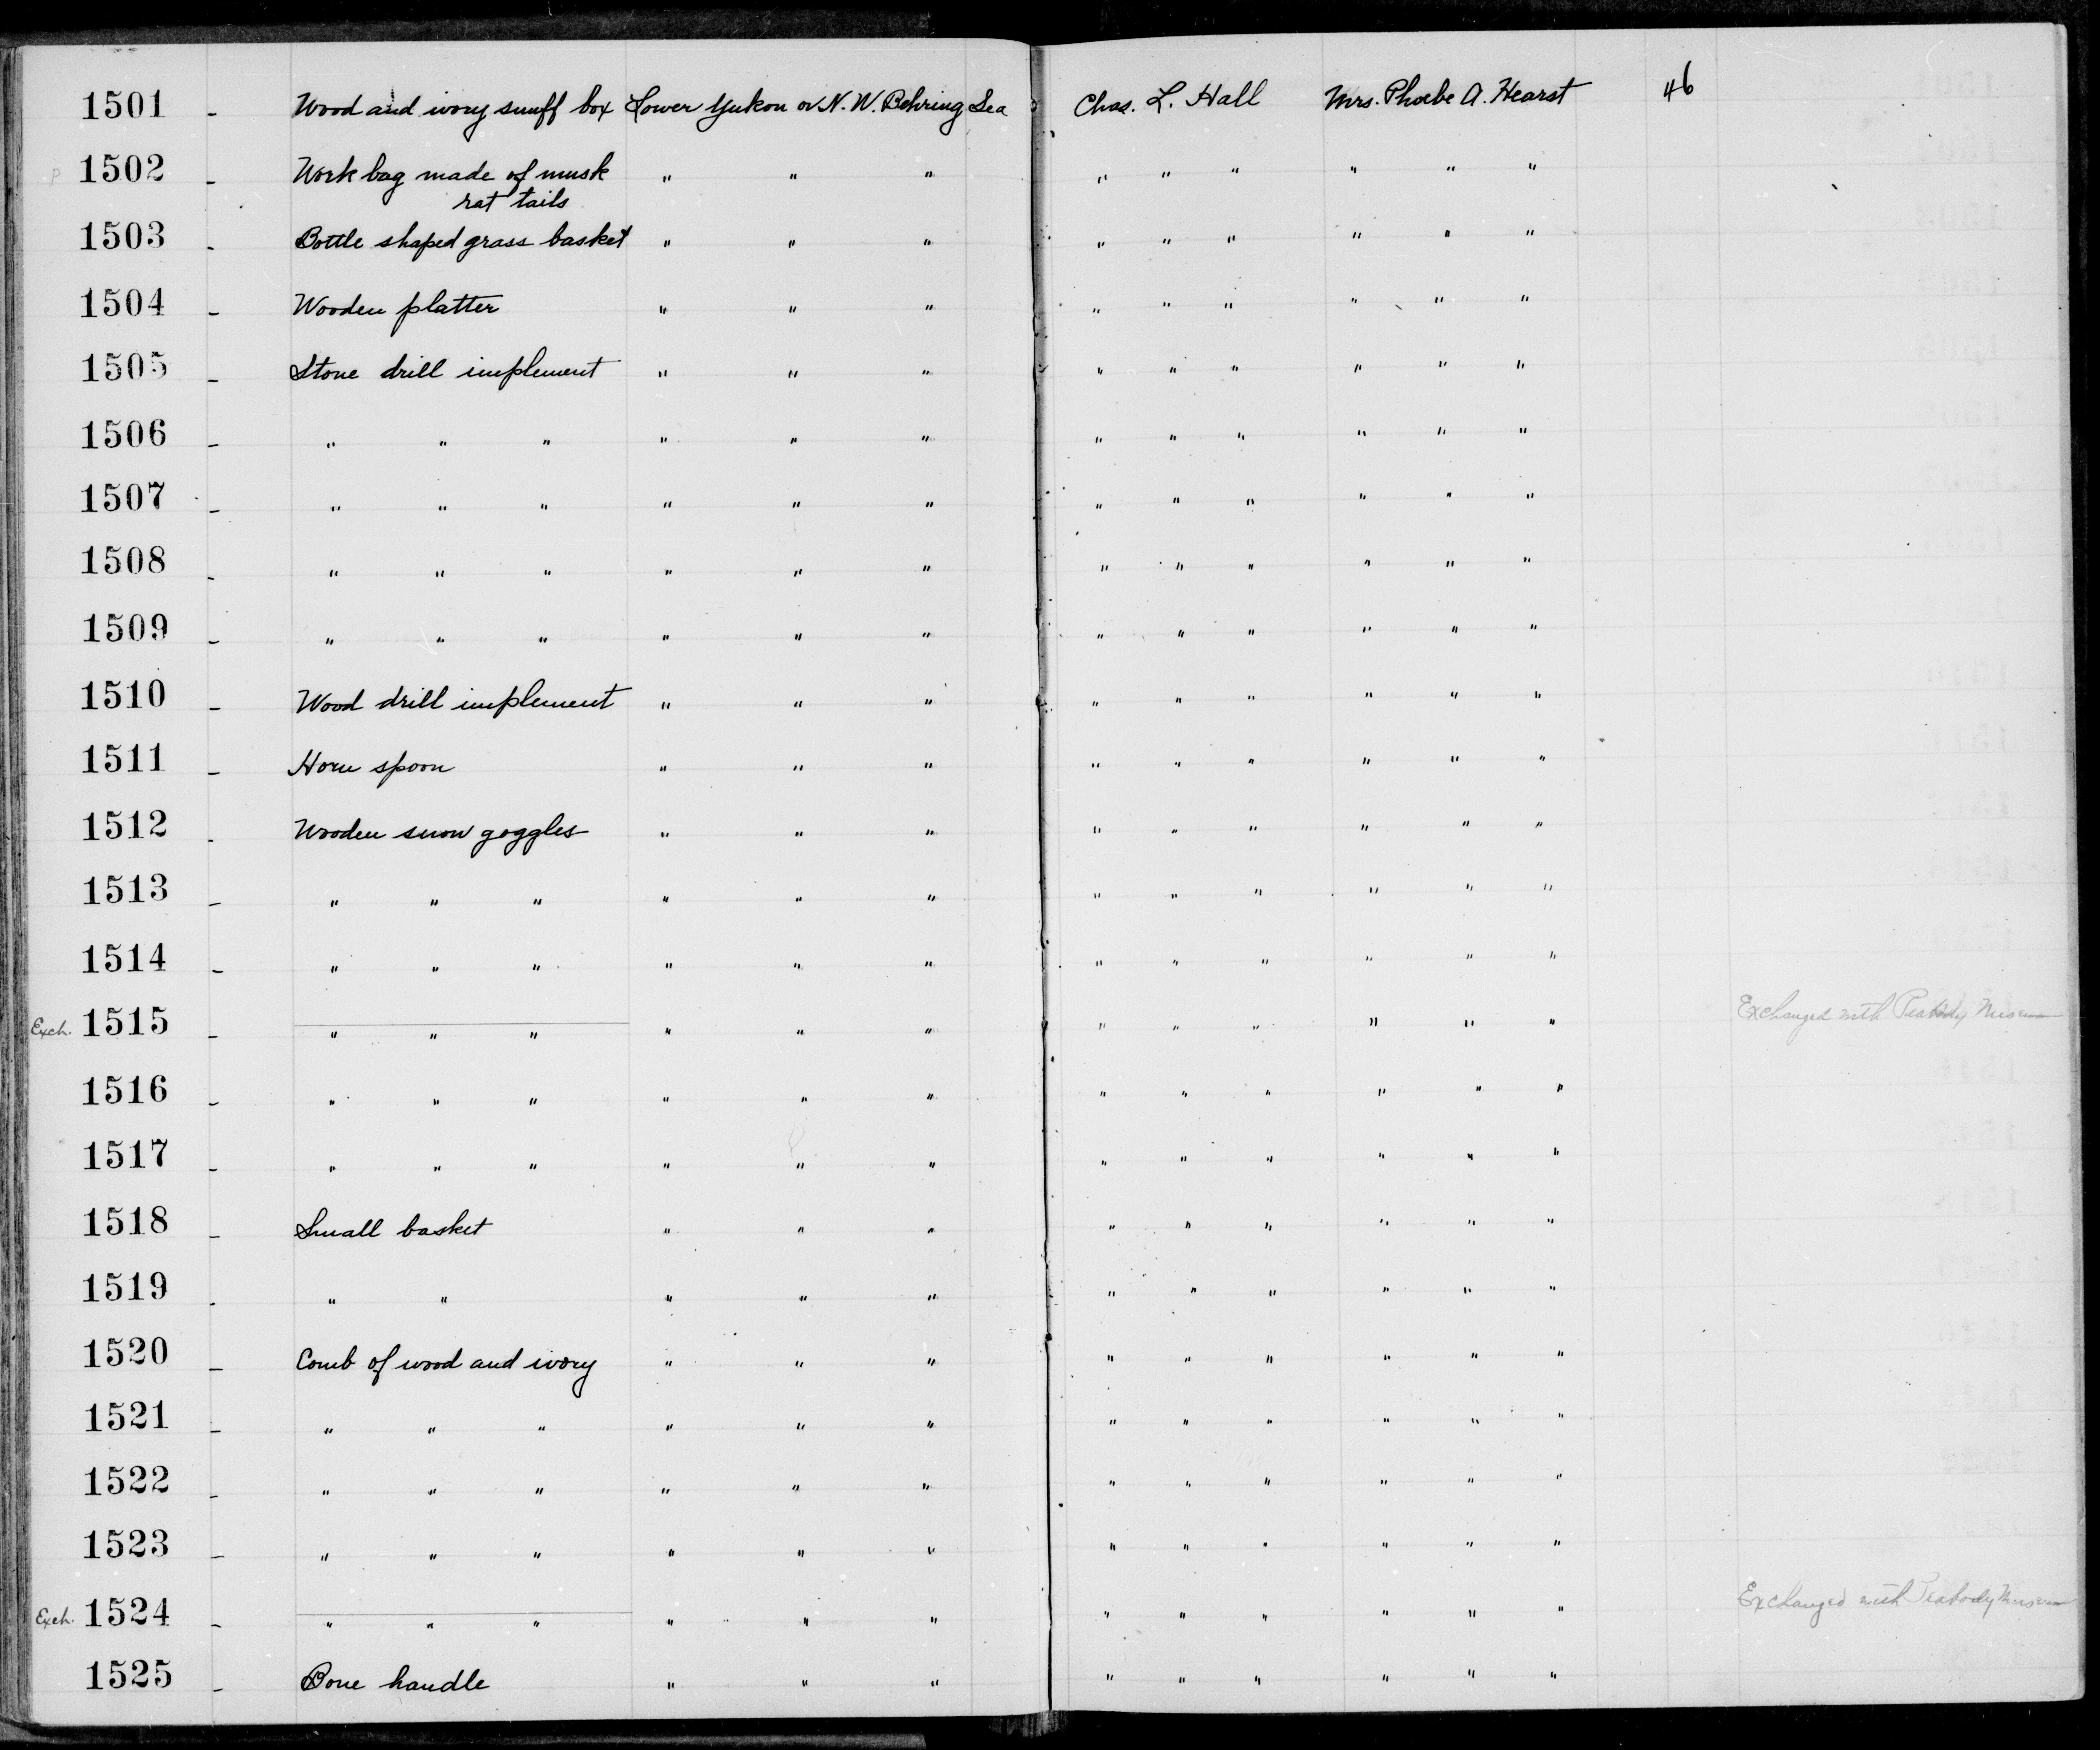 1501 - Wood and ivory snuff box Lower Yukon or N. W. Behring Sea Chas. L. Hall Mrs. Phoebe A. Hearst 46
1502 - Work bag made of musk " " " " " " " " "
rat tails
1503 - Bottle shaped grass basket " " " " " " " " "
1504 - Wooden platter " " " " " " " " "
1505 - Stone drill implement " " " " " " " " "
1506 - " " " " " " " " " " " "
1507 - " " " " " " " " " " " "
1508 - " " " " " " " " " " " "
1509 - " " " " " " " " " " " "
1510 - Wood drill implement " " " " " " " " "
1511 - Horn spoon " " " " " " " " "
1512 - Wooden snow goggles " " " " " " " " "
1513 - " " " " " " " " " " " "
1514 - " " " " " " " " " " " "
Exch. 1515 - " " " " " " " " " " " " Exchanged with Peabody Museum
1516 - " " " " " " " " " " " "
1517 - " " " " " " " " " " " "
1518 - Small basket " " " " " " " " "
1519 - " " " " " " " " " " "
1520 - Comb of wood and ivory " " " " " " " " "
1521 - " " " " " " " " " " " "
1522 - " " " " " " " " " " " "
1523 - " " " " " " " " " " " "
Exch. 1524 - " " " " " " " " " " " " Exchanged with Peabody Museum
1525 - Bone handle " " " " " " " " "